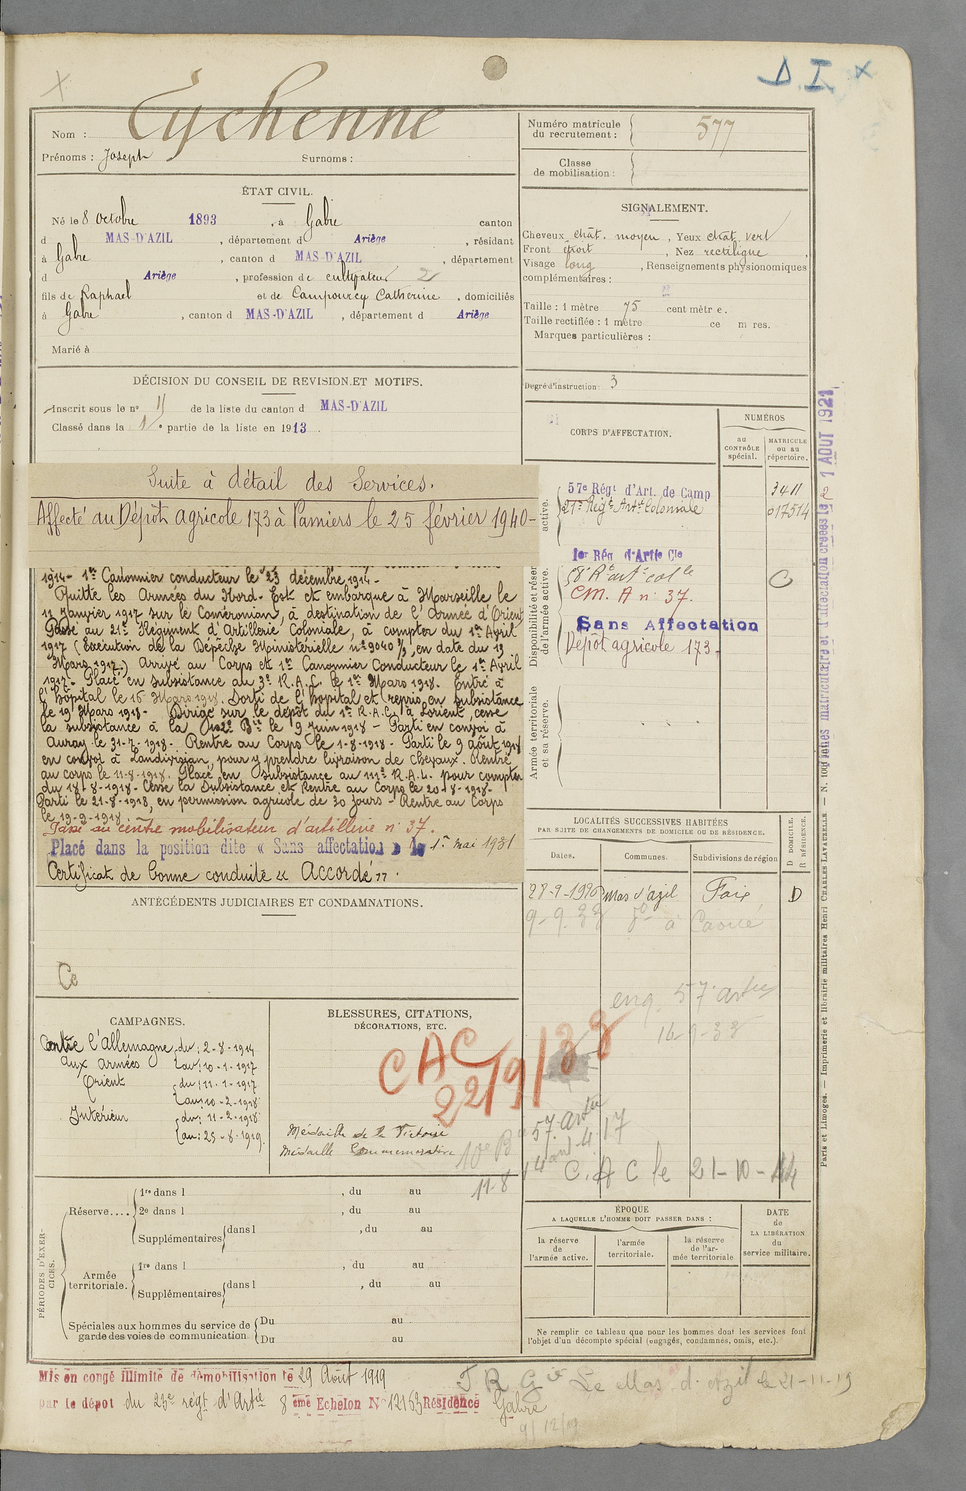 D.I. x
Nom : Eychenne
Prénoms : Joseph Surnoms :
Numéro matricule du recrutement : 577
Classe de mobilisation :
ÉTAT CIVIL.
Né le 8 octobre 1893, à Gabre canton
d MAS-D'AZIL, département d Ariège, résidant
à Gabre, canton d MAS-D'AZIL, département
d Ariège, profession de cultivateur 2
fils de Raphael et de Campourcy Catherine, domiciliés
à Gabre, canton d MAS-D'AZIL, département d Ariège
Marié à
SIGNALEMENT.
Cheveux chât. moyen, Yeux chât. vert
Front étroit, Nez rectiligne,
Visage long, Renseignements physionomiques
complémentaires :
Taille : 1 mètre 75 centimètre.
Taille rectifiée : 1 mètre ce m res.
Marques particulières :
Degré d'instruction : 3
DÉCISION DU CONSEIL DE REVISION ET MOTIFS.
Inscrit sous le n° 11 de la liste du canton d MAS-D'AZIL
Classé dans la 1re partie de la liste en 1913.
Suite à détail des Services.
Affecté au Dépôt agricole 173 à Pamiers le 25 février 1940-
1914- 1er Canonnier conducteur le 23 décembre 1914-
Quitte les Armées du Nord-Est et embarque à Marseille le
11 Janvier 1917 sur le Caméronian, à destination de l'Armée d'Orient
Passé au 21e Régiment d'Artillerie Coloniale, à compter du 1er Avril
1917 (Exécution de la Dépêche Ministérielle n° 9040 3/8, en date du 19
Mars 1917.) Arrivé au Corps et 1er Canonnier Conducteur le 1er Avril
1917- Placé en subsistance au 3e R.A.C. le 1er Mars 1918. Entré à
l'hôpital le 16 Mars 1918. Sorti de l'hopital et repris en subsistance
le 19 Mars 1918- Dirigé sur le dépot du 1er R.A.C. à Lorient, cesse
la subsistance à la Bie le 9 Juin 1918- Parti en convoi à
Auray le 31-7-1918- Rentre au Corps le 1-8-1918- Parti le 9 août 1918
en convoi à Landivisiau, pour y prendre livraison de Chevaux. Rentré
au corps le 11-8-1918. Placé en subsistance au 111e R.A.L. pour compter
du 18-8-1918- Cesse la Subsistance et Rentre au Corps le 20-8-1918-
Parti le 21-8-1918, en permission agricole de 30 jours- Rentre au Corps
le 19-9-1918
Passé au centre mobilisateur d'artillerie n° 37.
Placé dans la position dite « Sans affectation » le 1er mai 1931
Certificat de bonne conduite « Accordé ».
CORPS D'AFFECTATION.
NUMÉROS
au CONTRÔLE spécial.
MATRICULE ou au répertoire.
Disponibilité et réserve de l'armée active.
57e Régt d'Art. de Camp 3411
21e Régt Artie Coloniale 017514
1er Rég d'Artie Cle
58e R't art' col'le C
C.M. A n° 37.
Sans Affectation
Dépôt agricole 173-
Armée territoriale et sa réserve.
LOCALITÉS SUCCESSIVES HABITÉES
PAR SUITE DE CHANGEMENTS DE DOMICILE OU DE RÉSIDENCE.
Dates. Communes. Subdivisions de région D DOMICILE. R RÉSIDENCE.
Mas d'azil Foix D
9-9-33 à
eng. 57e artie
ANTÉCÉDENTS JUDICIAIRES ET CONDAMNATIONS.
CAMPAGNES.
Contre l'Allemagne du : 2-8-1914
aux armées au : 10-1-1917
Orient du : 11-1-1917
au : 10-2-1918
Intérieur du : 11-2-1918
au : 29-8-1919.
BLESSURES, CITATIONS,
DÉCORATIONS, ETC.
CAC
22/9/33
Médaille de la Victoire
Médaille Commémorative
57e artie
C.A.C le 21-10-
PÉRIODES D'EXERCICES.
Réserve.... 1re dans l , du au
2e dans l , du au
Supplémentaires dans l , du au
Armée territoriale. 1re dans l , du au
Supplémentaires dans l , du au
Spéciales aux hommes du service de garde des voies de communication. Du au
Du au
ÉPOQUE
A LAQUELLE L'HOMME DOIT PASSER DANS :
la réserve de l'armée active.
l'armée territoriale.
la réserve de l'armée territoriale
DATE de LA LIBÉRATION du service militaire.
Ne remplir ce tableau que pour les hommes dont les services font
l'objet d'un décompte spécial (engagés, condamnés, omis, etc.).
Mis en congé illimité de démobilisation le 29 Août 1919
par le dépôt du 23e régt d'Artie 8ème Echelon N° 12163 Résidence Gabre
Le Mas-d'azil le 21-11-19
Paris et Limoges. — Imprimerie et librairie militaires Henri CHARLES-LAVAUZELLE